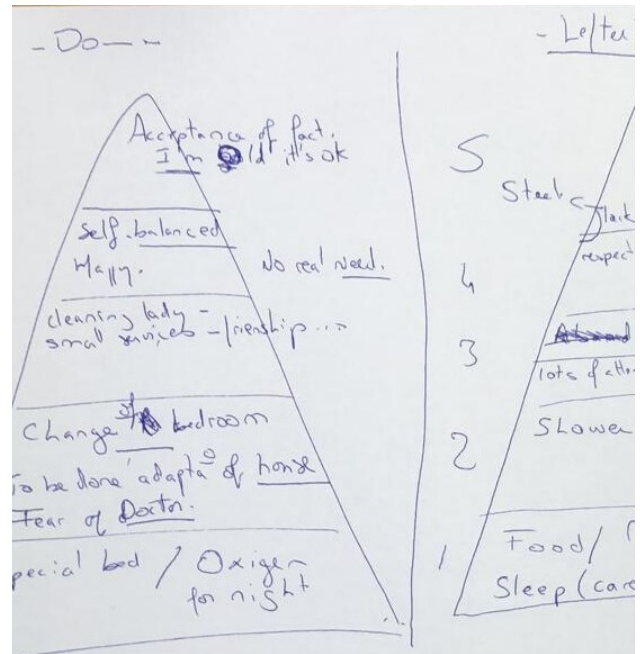 - Do - -
Acceptance of fact.
I'm old it's ok
Self-balanced
Happy.
No real need.
cleaning lady -
small services - frienship ...
Change of bedroom
To be done adapta° of house
Fear of Doctor.
pecial bed / Oxigen
for night
5
4
3
2
1
- Letter
respect
lots of
SLower
Food /
Sleep (care